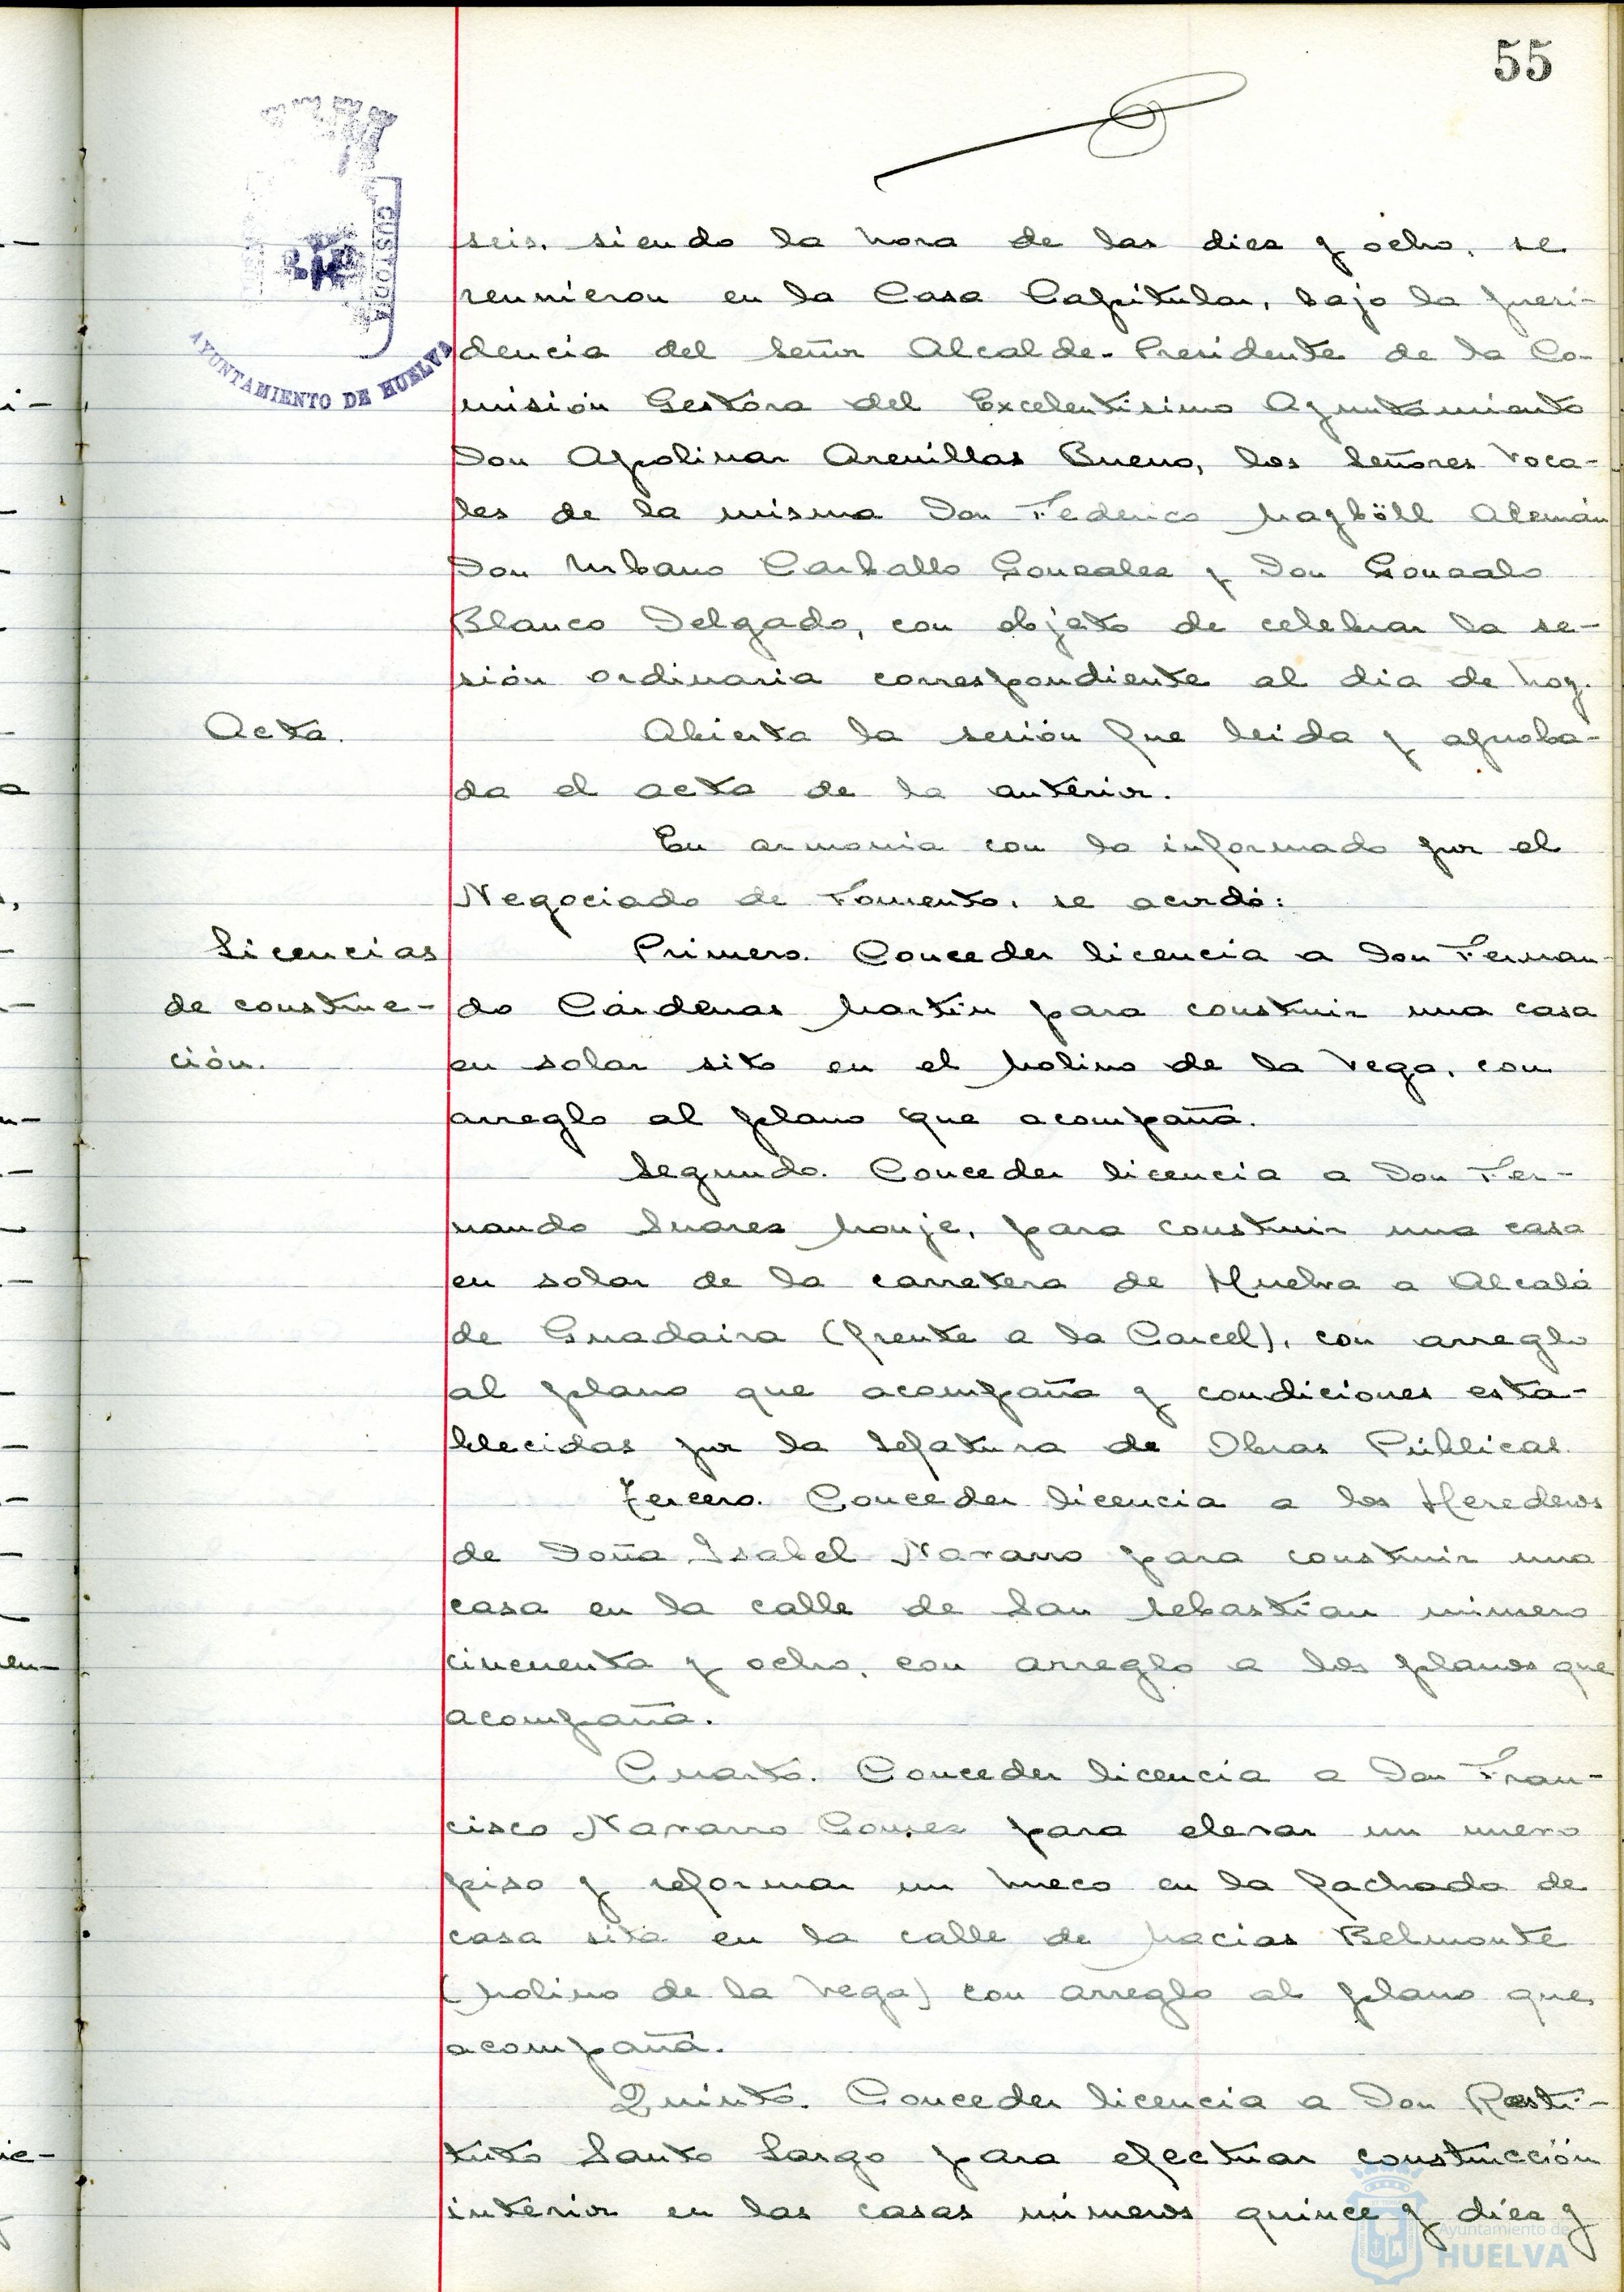 55
CUSTODIA
AYUNTAMIENTO DE HUELVA
seis, siendo la hora de las diez y ocho, se
reunieron en la Casa Capitular, bajo la presi-
dencia del Señor Alcalde-Presidente de la Co-
misión Gestora del Excelentísimo Ayuntamiento
Don Apolinar Arenillas Bueno, los Señores Voca-
les de la misma Don Federico Alemán
Don Urbano Carballo Gonzalez y Don Gonzalo
Blanco Delgado, con objeto de celebrar la se-
sión ordinaria correspondiente al dia de hoy.
Acta.
Abierta la sesión fue leida y aproba-
da el acta de la anterior.
En armonia con lo informado por el
Negociado de Fomento, se acordó:
Licencias
de construc-
ción.
Primero. Conceder licencia a Don Fernan-
do Cárdenas Martín para construir una casa
en solar sito en el Molino de la Vega, con
arreglo al plano que acompaña.
Segundo. Conceder licencia a Don Fer-
nando Suarez Monje, para construir una casa
en solar de la carretera de Huelva a Alcalá
de Guadaira (frente a la Carcel), con arreglo
al plano que acompaña y condiciones esta-
blecidas por la Jefatura de Obras Públicas.
Tercero. Conceder licencia a los Herederos
de Doña Isabel Navarro para construir una
casa en la calle de San Sebastian número
cincuenta y ocho, con arreglo a los planos que
acompaña.
Cuarto. Conceder licencia a Don Fran-
cisco Navarro Gomez para elevar un nuevo
piso y reformar un hueco en la fachada de
casa sita en la calle de Macias Belmonte
(Molino de la Vega) con arreglo al plano que
acompaña.
Quinto. Conceder licencia a Don Resti-
tuto Santo Largo para efectuar construcción
interior en las casas números quince y diez y
Ayuntamiento de
HUELVA